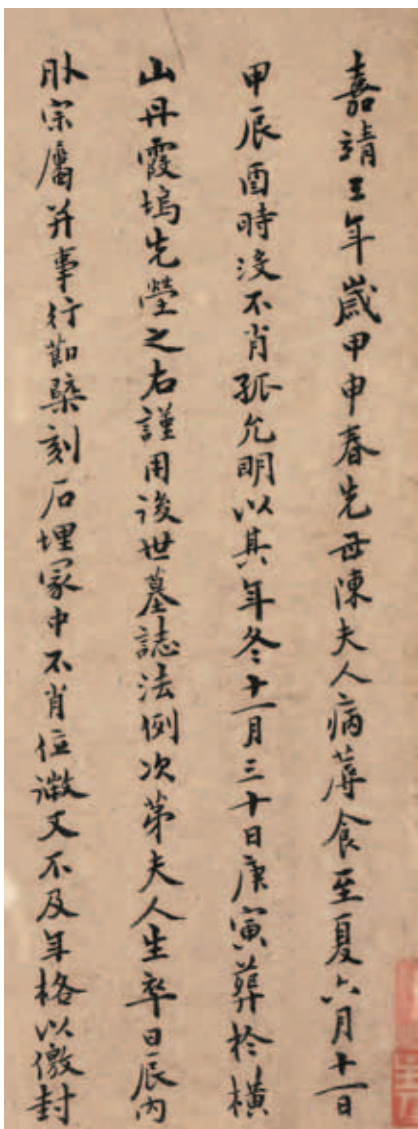 嘉靖三年歲甲申春先母陳夫人病蓐食至夏六月十一日
甲辰酉時沒不肖孤允明以其年冬十一月三十日庚寅葬於橫
山丹霞塢先塋之右謹用後世墓誌法例次第夫人生卒日辰內
外宗屬并事行槩刻石埋冢中不肖位微又不及年格以徼封